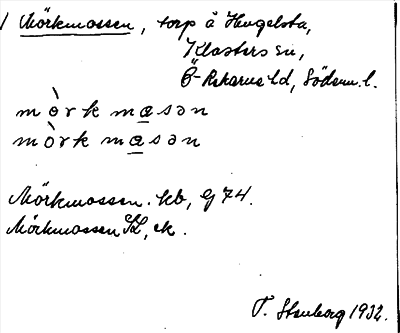 1 Mörkmossen, torp å Hugelsta,
Klosters sn,
Ö-Rekarne hd, Söderm. l.
mòrk mo̲sən
mòrk mo̲sən
Mörkmossen. kb, G 74.
Mörkmossen JK, ek.
T. Stenborg 1932.